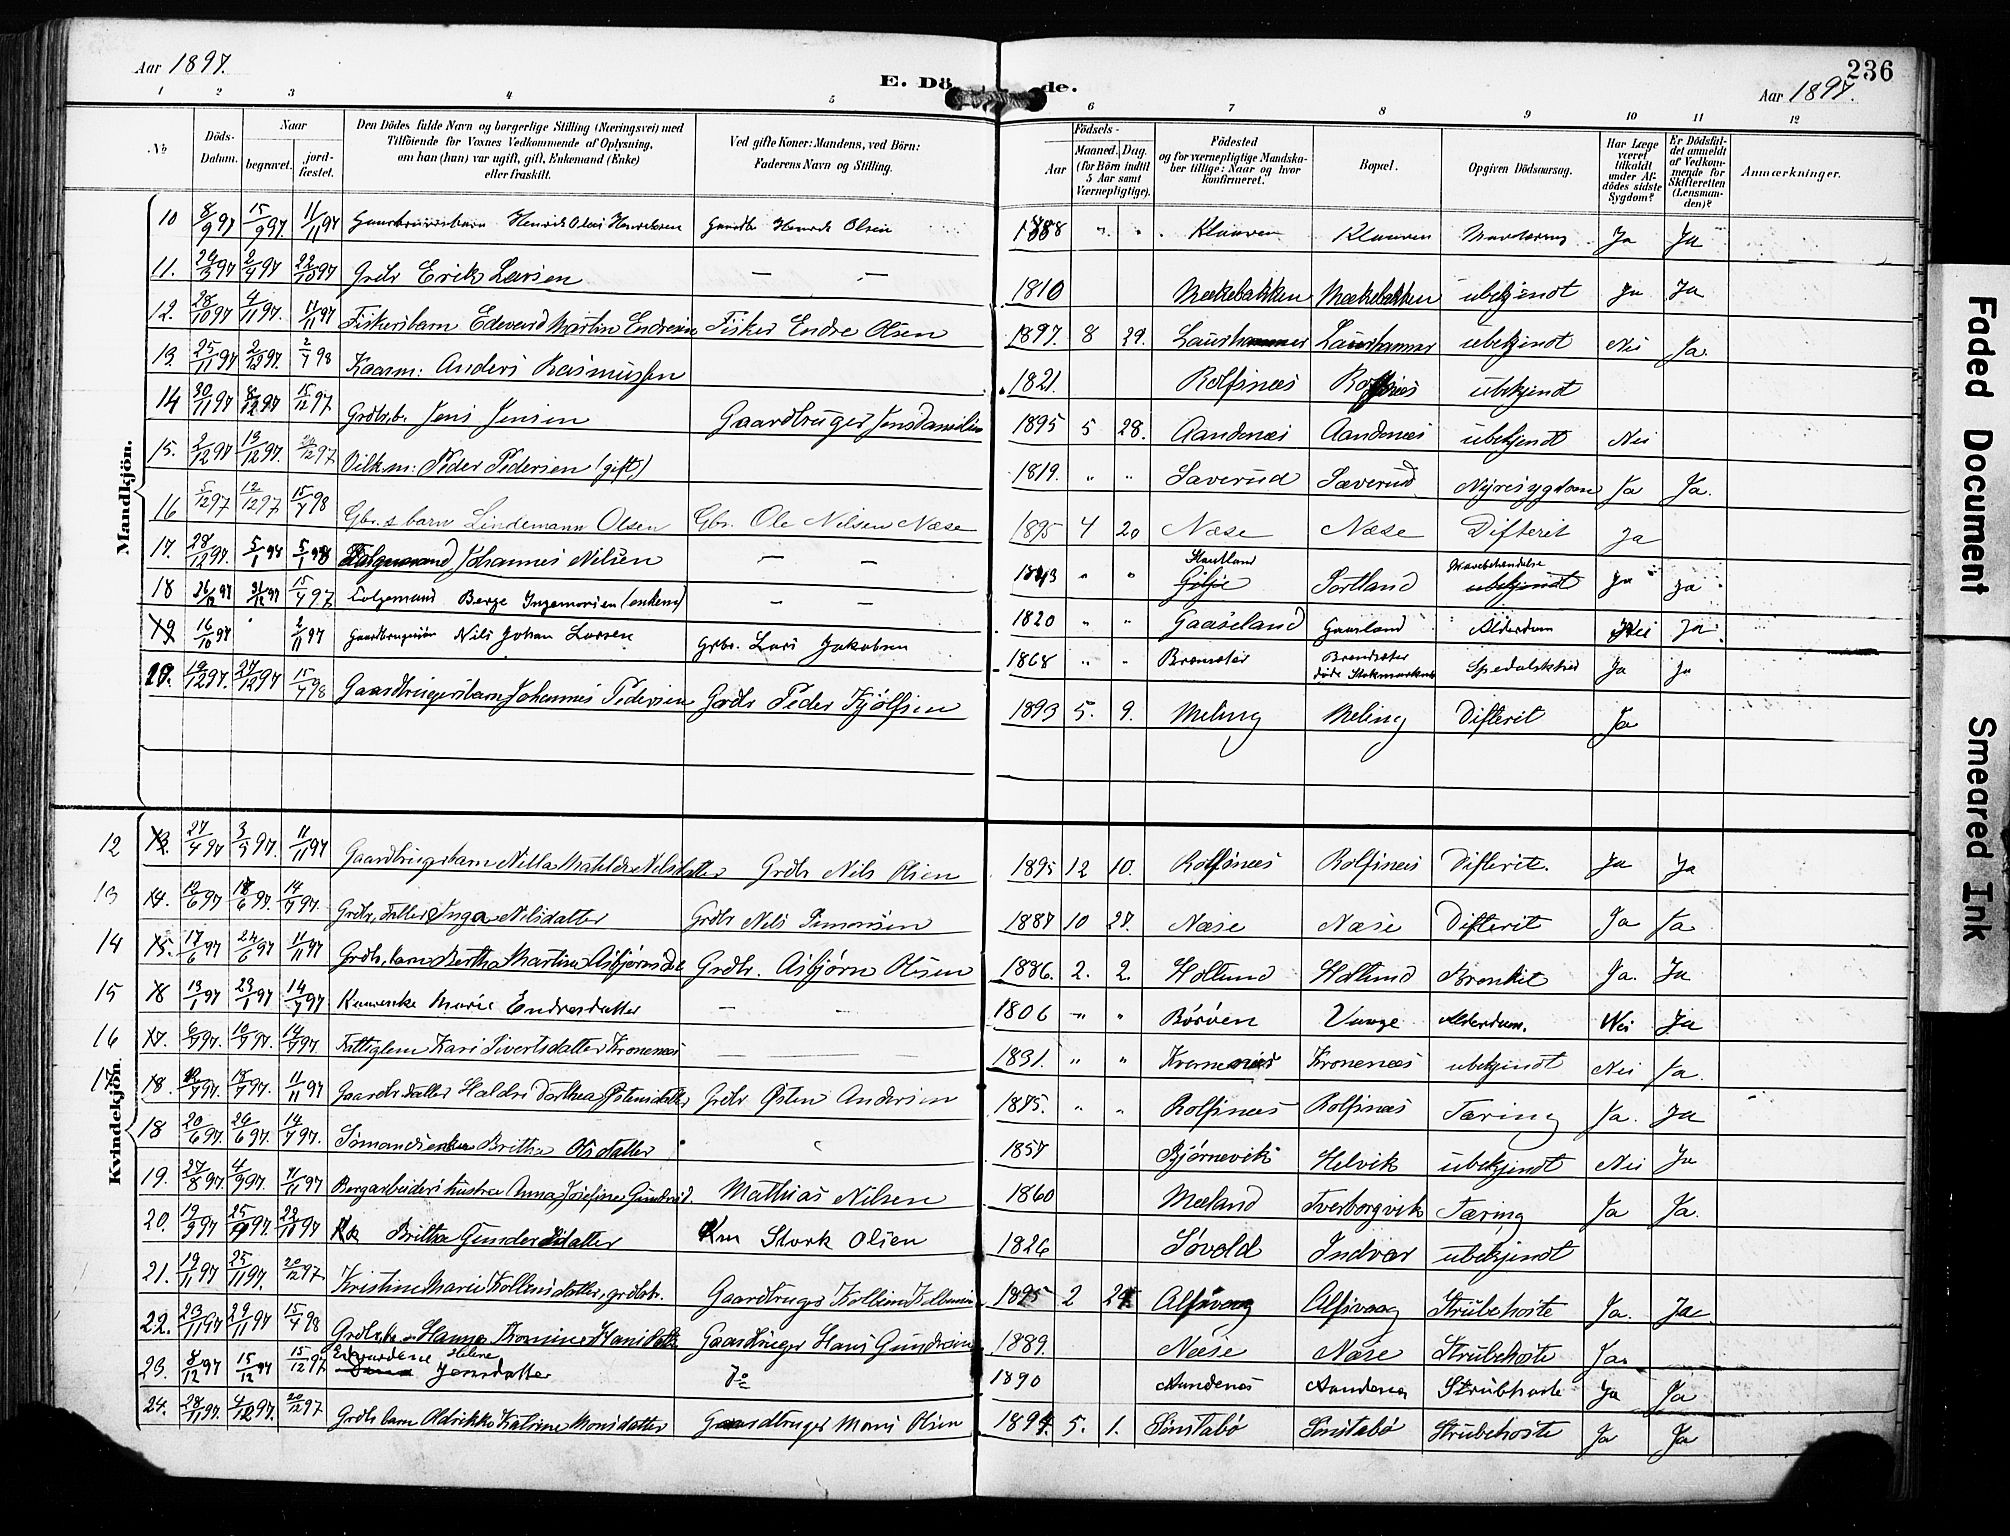 Aar 1897.
E. Dö de.
236
Aar 1897.
1 2 3 4 5 6 7 8 9 10 11 12
No
Döds-Datum.
Naar
begravet.
jord-fæstet.
Den Dödes fulde Navn og borgerlige Stilling (Næringsvei) med
Tilföiende for Voxnes Vedkommende af Oplysning,
om han (hun) var ugift, gift, Enkemand (Enke)
eller fraskilt.
Ved gifte Koner: Mandens, ved Börn:
Faderens Navn og Stilling.
Födsels-
Aar
Maaned. Dag.
(for Börn indtil
5 Aar samt
Værnepligtige).
Födested
og for værnepligtige Mandska-
ber tillige: Naar og hvor
konfirmeret.
Bopæl.
Opgiven Dödsaarsag.
Har Læge
været
tilkaldt
under Af-
dödes sidste
Sygdom?
Er Dödsfal-
det anmeldt
af Vedkom-
mende for
Skifteretten
(Lensman-
den)?
Anmærkninger.
Mandkjön.
10 8/9 97 15/9 97. 11/11 97 Henrik Olai Henriksen Gaardbr Henrik Olsen 1888 " " Klauven Klauven Ja Ja
11. 29/3 97 2/4 97 22/10 97 Grdbr Erik Larsen — — 1810 Mækebakken Mækebakken ubekjendt Ja Ja
12. 28/10 97 4/11 97. 11/11 97 Fiskersbarn Edevard Martin Endresen Fisker Endre Olsen 1897. 8 29. Laurhammer Laurhammer ubekjendt Nei Ja.
13. 25/11 97 2/12 97. 2/4 98 Kaarm: Anders Rasmussen 1821. Rolfsnæs Rolfsnæs ubekjendt
14 30/11 97 8/12 97 15/12 97. Grdbr.b. Jens Jensen Gaardbruger Jens Danielsen 1895 5 28. Aandenæs Aandenæs ubekjendt Nei
15. 2/12 97 13/12 97. 20/12 97 Vilkm: Peder Pedersen (gift) 1819. " " Saverud Sæverud Nyresygdom Ja Ja.
16 5/12 97 12/12 97 15/4 98 Gbr.s barn Lindemann Olsen Gbr. Ole Nilsen Næse 1895 4 20 Næse Næse Difterit Ja
17. 28/12 97. 5/1 98 5/1 98 Johannes Nilsen — — 1843 " " Sortland ubekjendt Ja Ja
18 26/12 97 31/12 97 15/4 97. Folgemand Berge Ingemorsen (enkem) — — 1820 " " Gaaseland Gaasland Alderdom Nei Ja
19 16/10 97 2/11 97 Nils Johan Larsen Grbr. Lars Jakobsen 1868 " " Bremnes Spedalskhed Ja Ja
20. 19/12 97. 27/12 97 15/4 98 Gaardbrugersbarn Johannes Pedersen Grdbr Peder Kjølfsen 1893 5. 9. Meling Meling Difterit Ja
Kvindekjön.
12 13. 27/4 97 3/5 97. 11/11 97 Gaardbrugerbarn Nilla Mathilde Nilsdatter Grdbr Nils Olsen 1895 12 10. Rolfsnæs Rolfsnæs Difterit. Ja Ja
13 14. 12/6 97 18/6 97. 14/7 97. Grdbr. datter Inga Nilsdatter Grdbr Nils Simonsen 1887 10 27. Næse Næse Difterit Ja Ja
14 15. 17/6 97 24/6 97 11/11 97 Grdbr. barn Bertha Martine Asbjørnsdat Grdbr. Asbjørn Olsen 1896. 2. 2. Hollund Hollund Bronkit Ja. Ja
15 16 13/1 97 23/1 97 14/7 97. Marie Endresdatter — — 1806 " " Børøen Vaage Alderdom. Nei Ja
16 17. 6/7 97. 10/7 97. 14/7 97. Fattiglem Kari Sivertsdatter Kronenæs — — 1831. " " Kronenæs Kronenæs ubekjendt Nei Ja.
17 18. 12/7 97. 15/7 97. 11/11 97 Gaardbr. datter Haldri Dorthea Østensdatter Grdbr Østen Andersen 1875. " " Rolfsnæs Rolfsnæs Tæring Ja. Ja
18 20/6 97. 26/6 97. 14/7 97. Sømandsenke Britha Olsdatter 1857 Bjørnevik Helvik ubekjendt Nei Ja
19. 27/8 97. 4/9 97. 11/11 97 Bergarbeiders kustru Anna Josefine Gundersd. Mathias Nilsen 1860 Mæland Tverborgvik Tæring Ja Ja.
20. 19/3 97 25/9 97. 22/10 97 Kk Britha Gundersdatter Km Stork Olsen 1826 Søvold Indvær ubekjendt
21. 19/11 97 25/11 97. 20/12 97. Kristine Marie Kolbensdatter, grdbr. Gaardbruger Kolbein Kolbensen 1895 2 24 Alfsvaag Alfsvaag Strubehoste Ja. Ja.
22. 23/11 97 29/11 97 15/4 98 Grdbr.b. Hanna Kromine Hansdatter Gaardbruger Hans Gundersen 1889. Næse Næse Strubehoste Ja.
23. 8/12 97 15/12 97 15/12 97. Edvardene Helene Jensdatter Do 1890 Aandenæs Aandenæs Strubhoste Ja Ja
24. 28/11 97. 4/12 97. 20/12 97. Grdbr barn Oldrikke Katrine Monsdatter Gaardbruger Mons Olsen 1894. 5. 1. Sønstabø Sønstabø Strubehoste Ja Ja
Faded Document
Smeared Ink